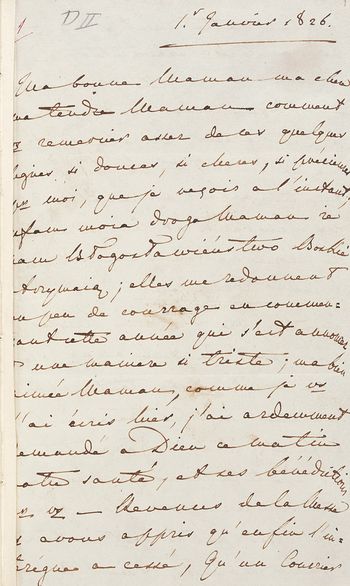 D II
1.r Janvier 1826.
Ma bonne Maman ma chère
ma tendre Maman comment
vs remercier assez de ces quelques
lignes si douces, si chères, si précieuses
pr moi, que je reçois à l'instant,
moia droga Maman ze
nam Błogosławieństwo Boskie
; elles me redonnent
un peu de courrage en commen-
çant cette année qui s'est annoncée
d'une manière si triste; ma bien
aimée Maman, comme je vs
l'ai écris hier, j'ai ardemment
demandé à Dieu ce matin
votre santé, et ses bénédictions
pr vs — Revenus de la Messe
ns avons appris qu'enfin l'in-
trègne a cessé, Qu'un Courier